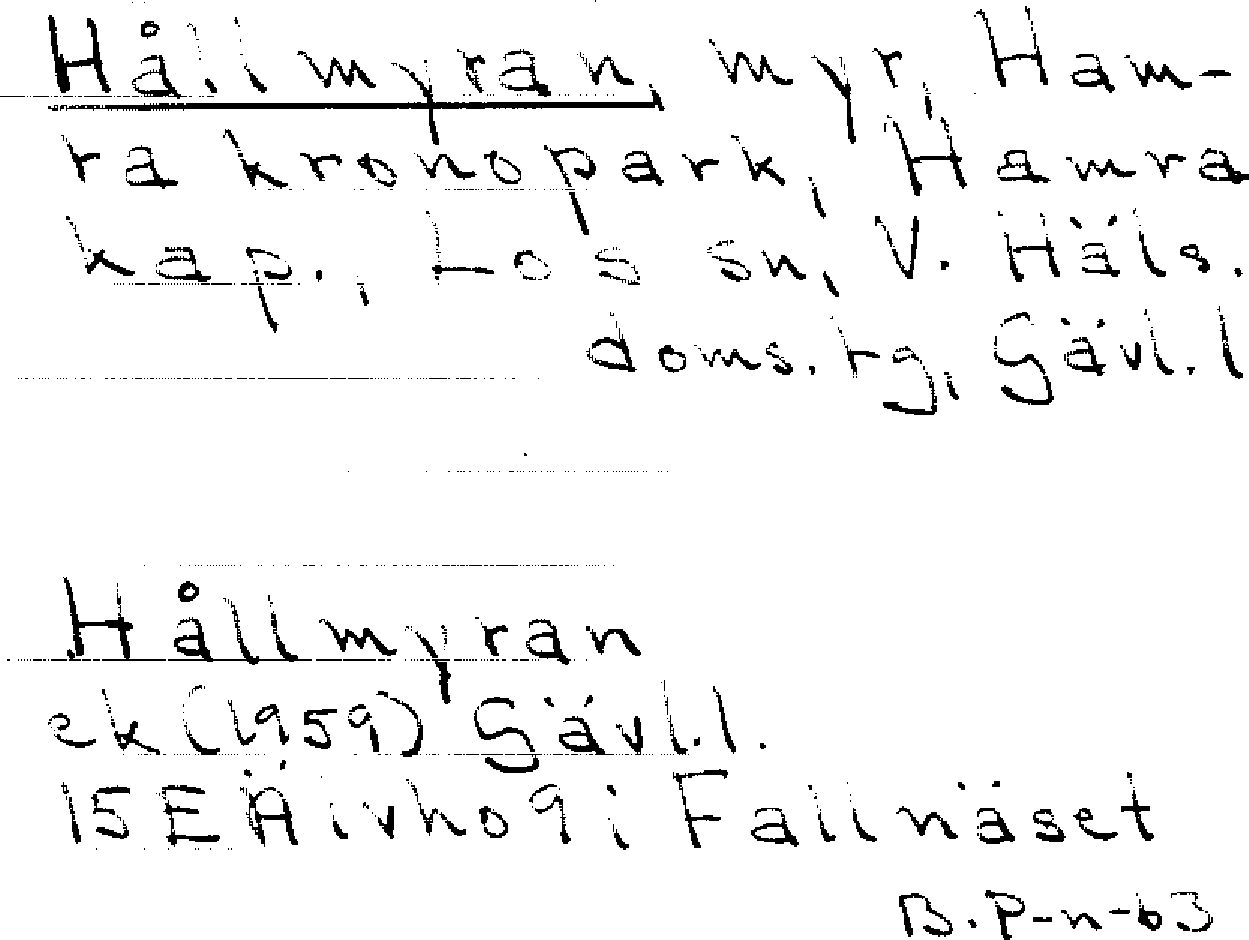 Hållmyran, myr, Ham-
ra kronopark, Hamra
kap., Los sn, V. Häls.
doms. tg, Gävl. l
Hållmyran
ek (1959) Gävl. l.
15E Ä i Fallnäset
B. P-n-63